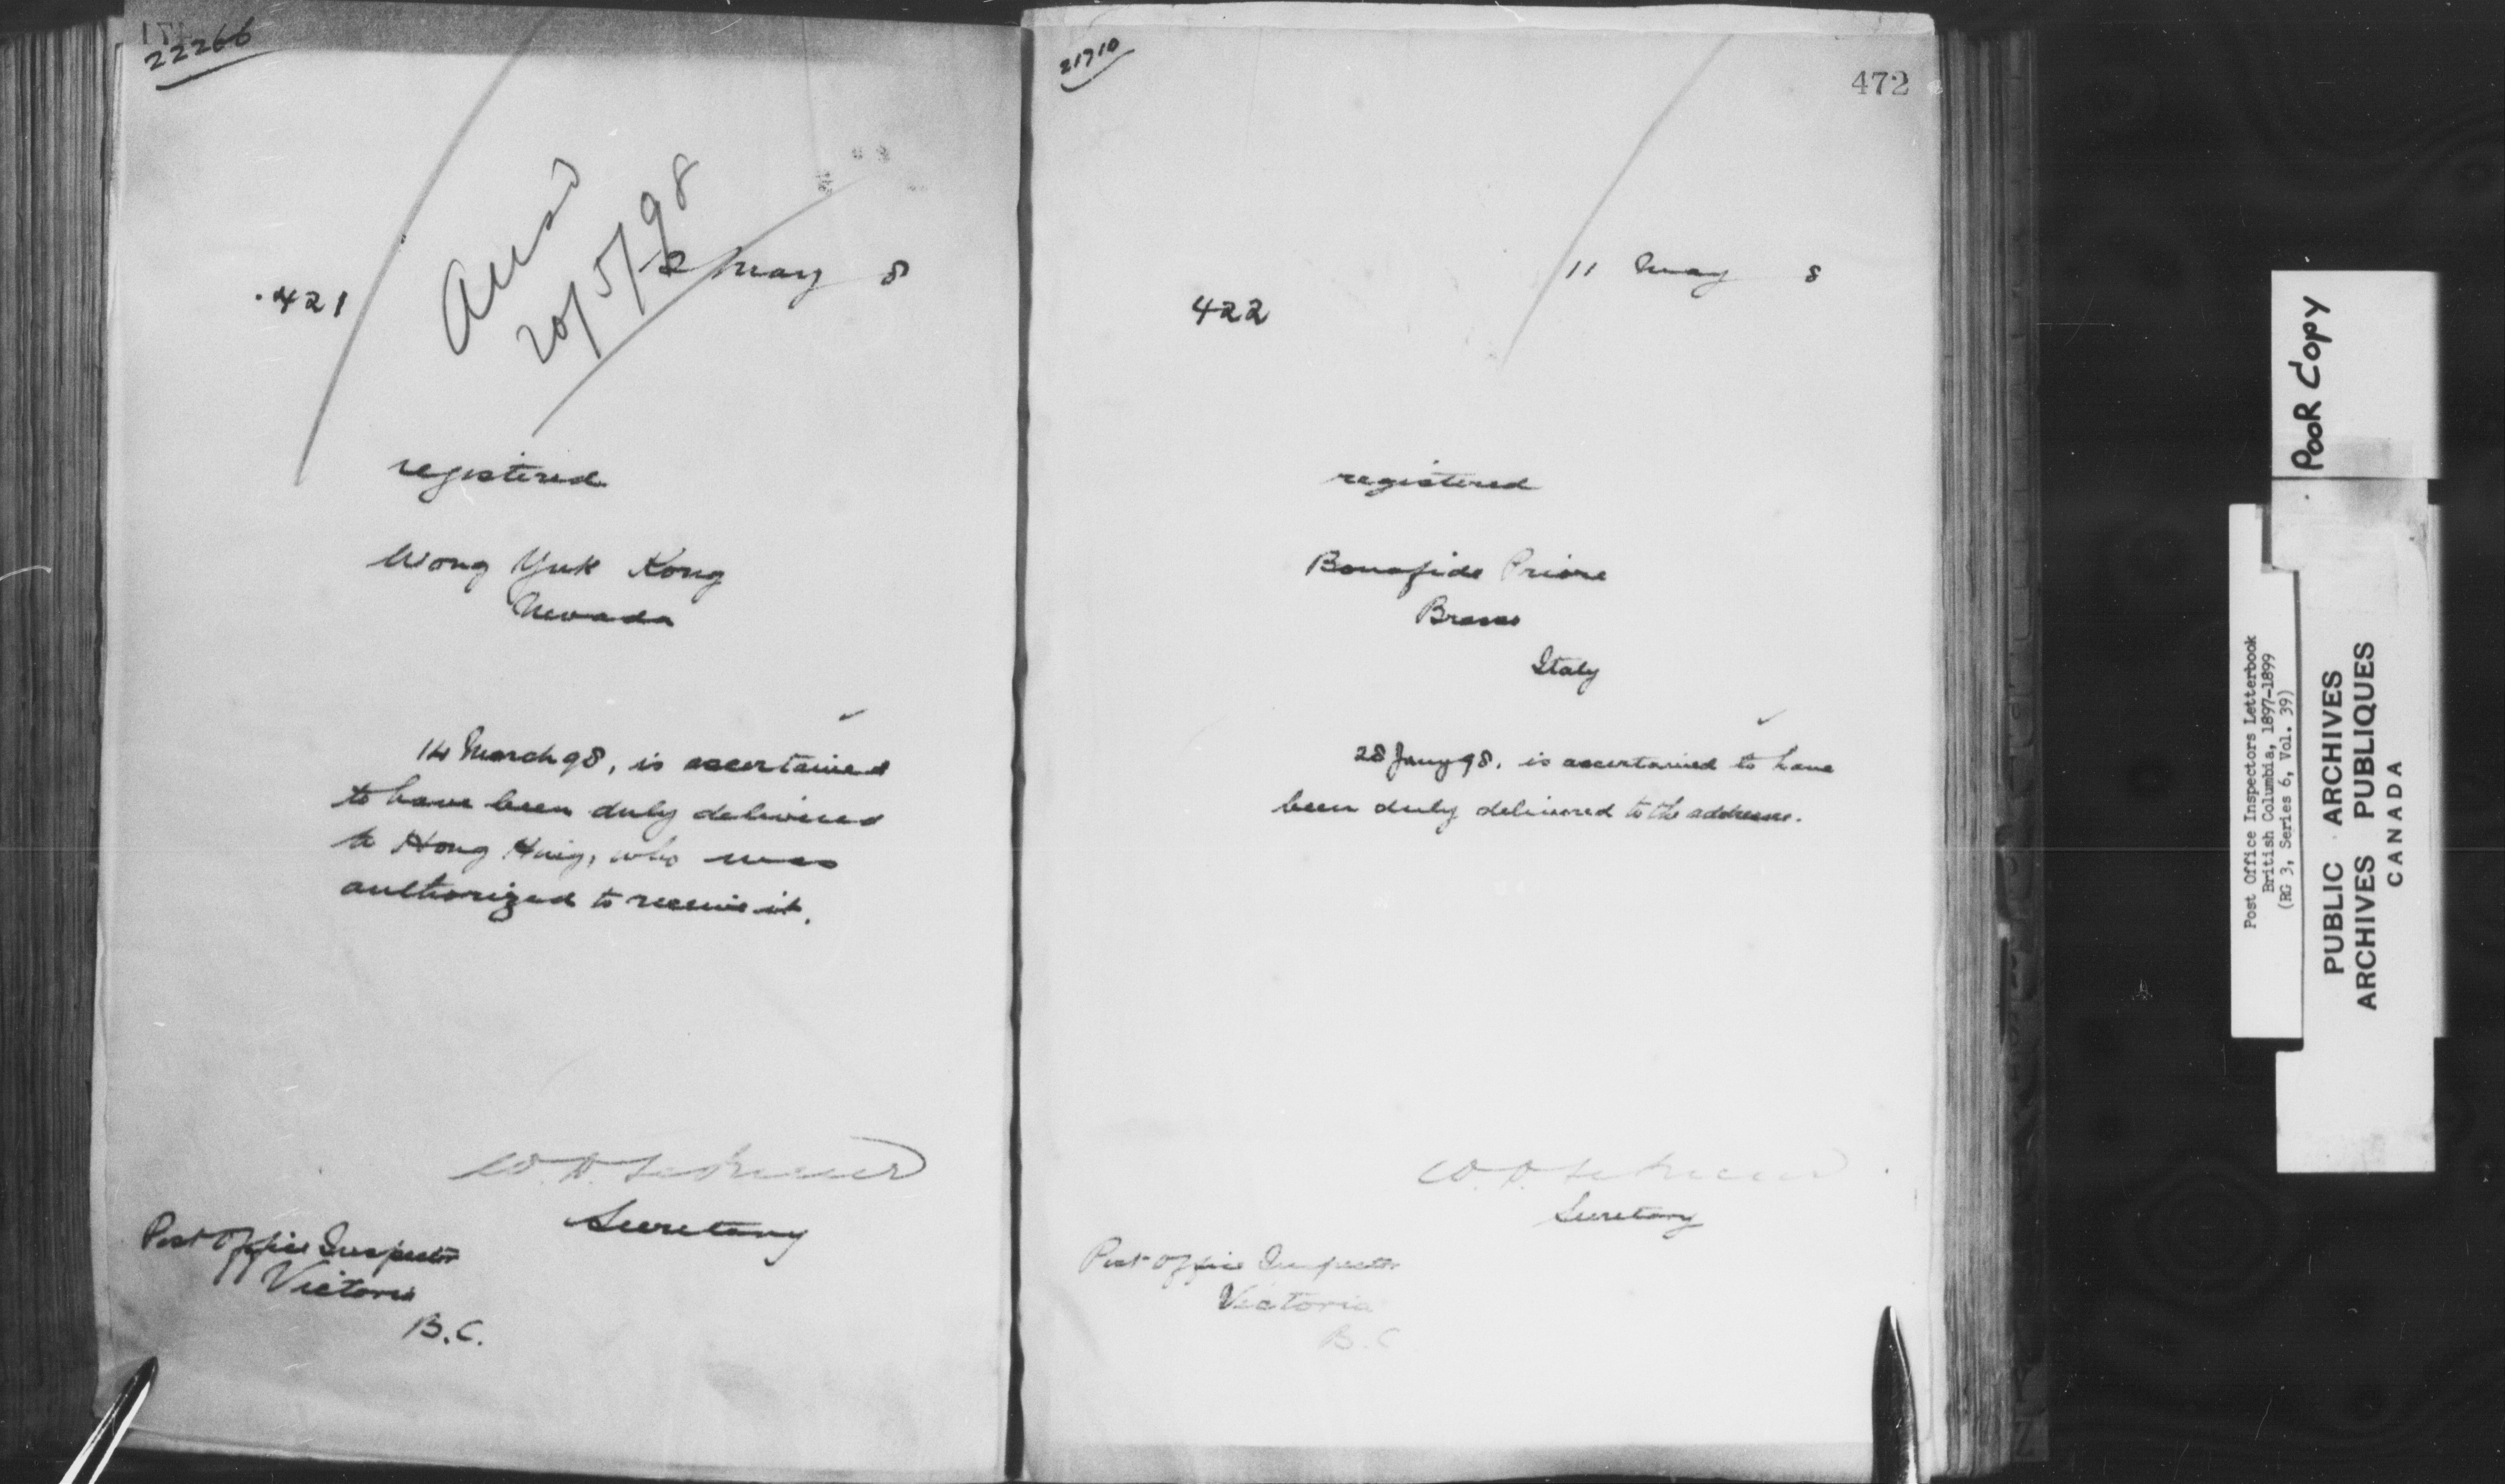 22266
421
Ansd
20/5/98
May 8
registered
Wong Yuk Kong
Nevada
14 March 98, is ascertained
to have been duly delivered
to Hong Hing, who was
authorized to receive it.
Secretary
Post Office Inspector
Victoria
B.C.
21710
472
11 May 8
422
registered
Bonafide Priore
Italy
28 Jany 98, is ascertained to have
been duly delivered to the addressee.
Secretary
Post Office Inspector
Victoria
B.C
Poor Copy
Post Office Inspectors Letterbook
British Columbia, 1897-1899
(RG 3, Series 6, Vol. 39)
PUBLIC ARCHIVES
ARCHIVES PUBLIQUES
CANADA